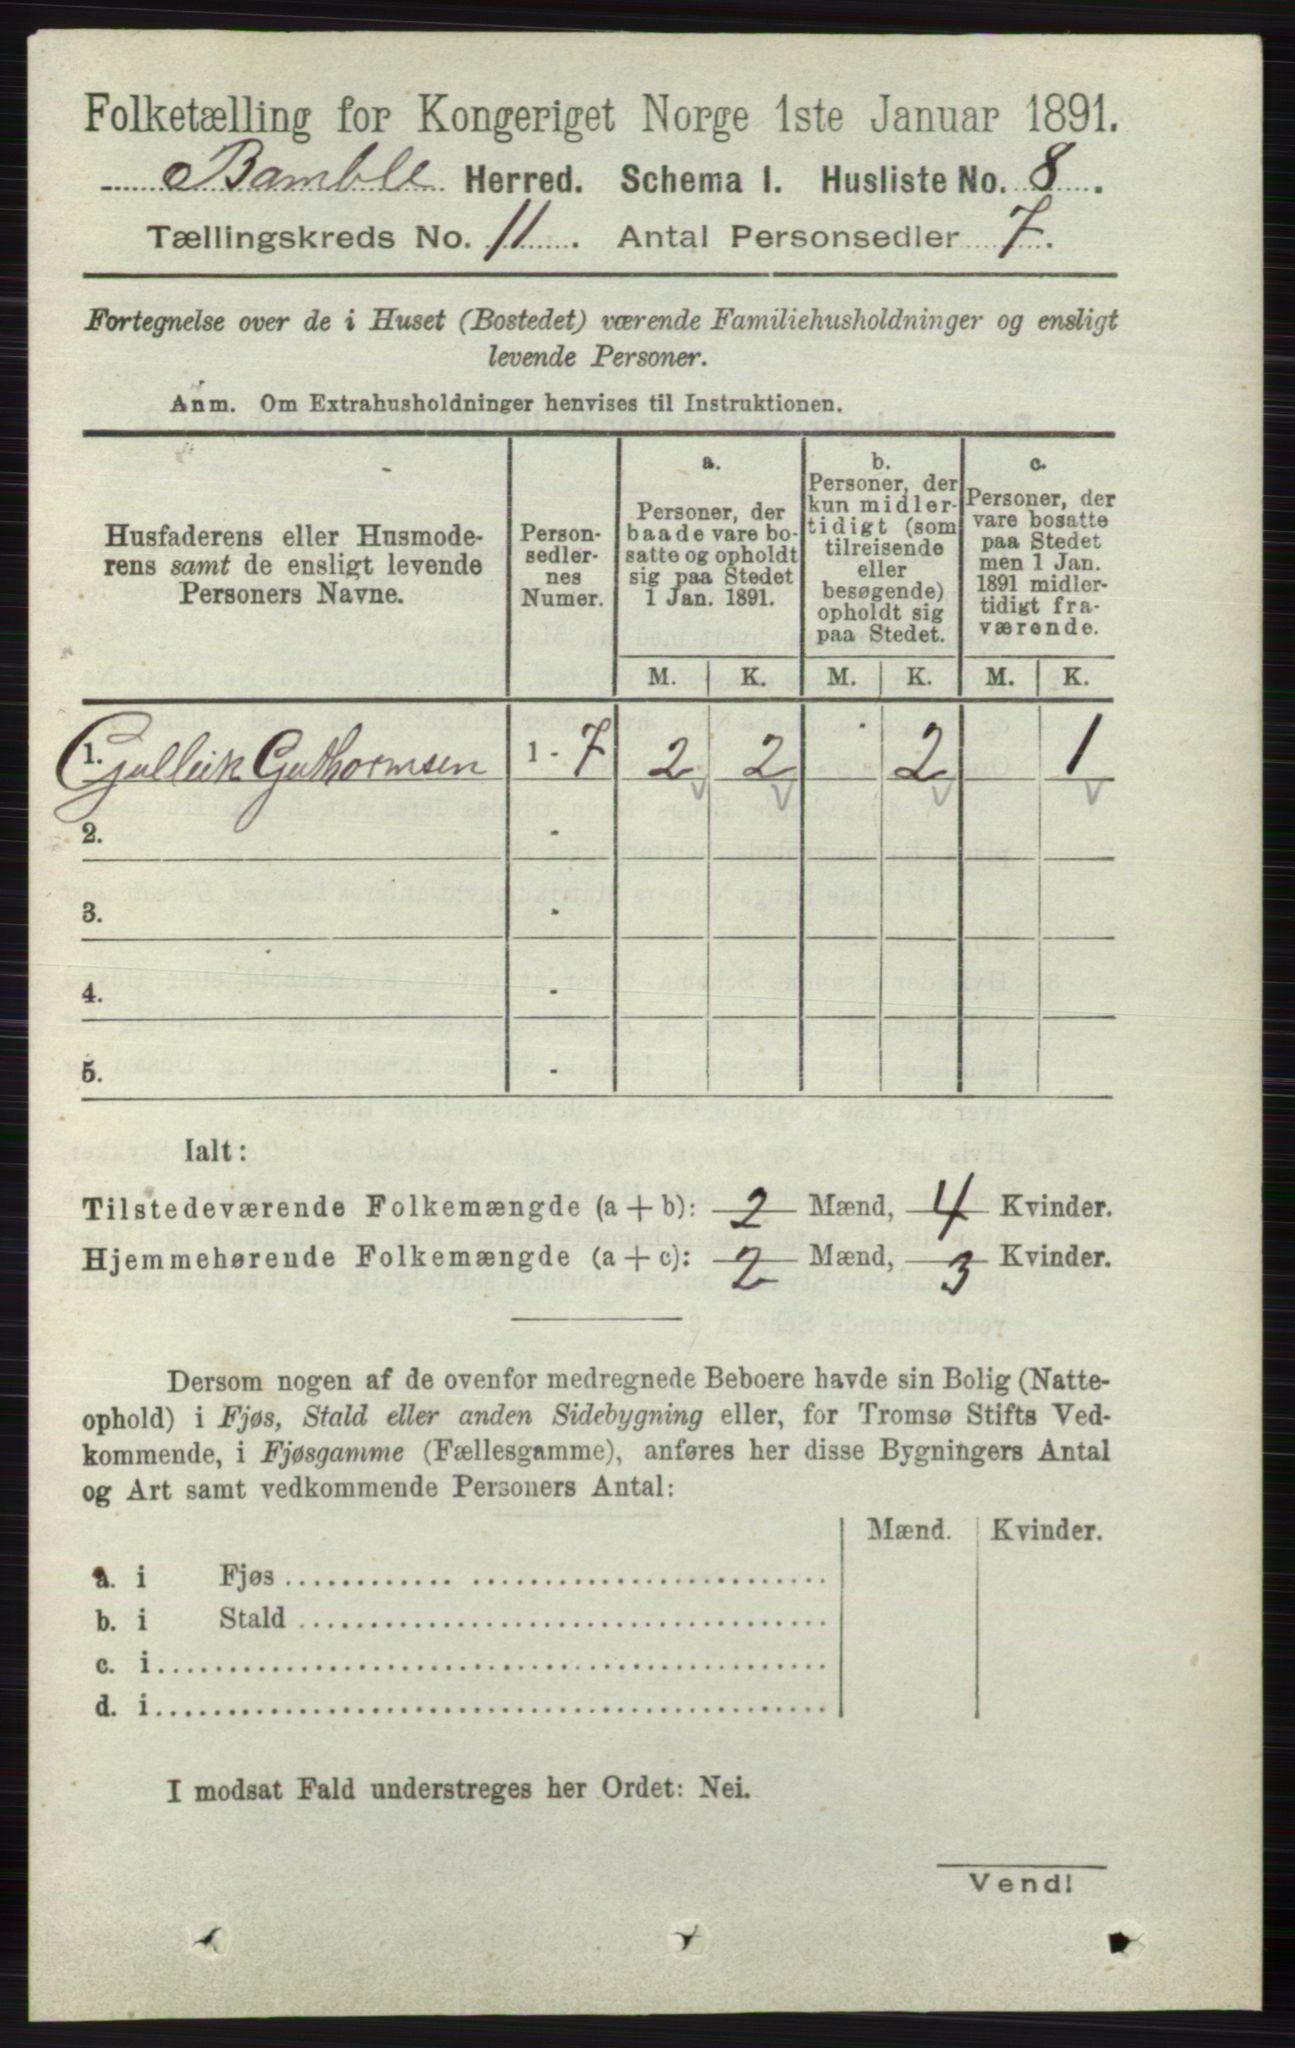 Folketælling for Kongeriget Norge 1ste Januar 1891.
Bamble Herred. Schema I. Husliste No. 8.
Tællingskreds No. 11. Antal Personsedler 7.
Fortegnelse over de i Huset (Bostedet) værende Familiehusholdninger og ensligt
levende Personer.
Anm. Om Extrahusholdninger henvises til Instruktionen.
Husfaderens eller Husmode-
rens samt de ensligt levende
Personers Navne.
Person-
sedler-
nes
Numer.
a.
Personer, der
baade vare bo-
satte og opholdt
sig paa Stedet
1 Jan. 1891.
b.
Personer, der
kun midler-
tidigt (som
tilreisende
eller
besøgende)
opholdt sig
paa Stedet.
c.
Personer, der
vare bosatte
paa Stedet
men 1 Jan.
1891 midler-
tidigt fra-
værende.
M. K. M. K. M. K.
1. Gullik Guthormsen 1 - 7 2 2 2 1
2. -
3. -
4. -
5. -
Ialt:
Tilstedeværende Folkemængde (a + b): 2 Mænd, 4 Kvinder.
Hjemmehørende Folkemængde (a + c): 2 Mænd, 3 Kvinder.
Dersom nogen af de ovenfor medregnede Beboere havde sin Bolig (Natte-
ophold) i Fjøs, Stald eller anden Sidebygning eller, for Tromsø Stifts Ved-
kommende, i Fjøsgamme (Fællesgamme), anføres her disse Bygningers Antal
og Art samt vedkommende Personers Antal:
Mænd. Kvinder.
a. i Fjøs
b. i Stald
c. i
d. i
I modsat Fald understreges her Ordet: Nei.
Vend!